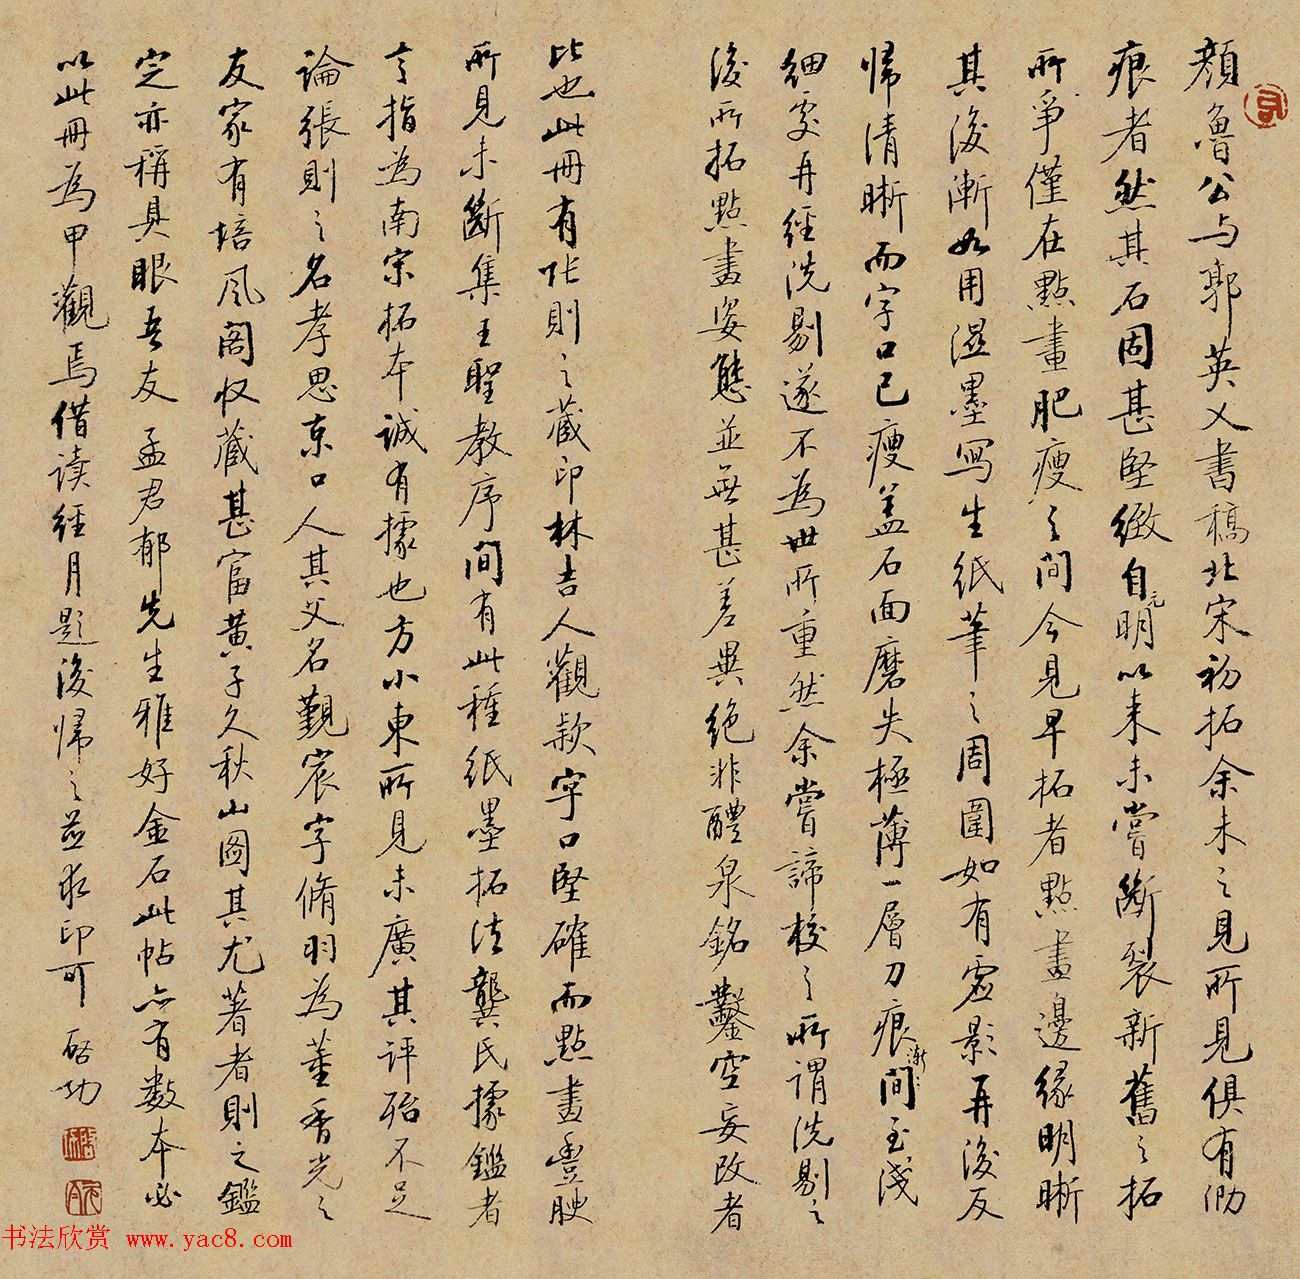 顏魯公与郭英乂書稿北宋初拓余未之見所見俱有泐
痕者然其石固甚堅緻自元明以来未嘗斷裂新舊之拓
所爭僅在點畫肥瘦之間今見早拓者點畫邊緣明晰
其後漸如用濕墨寫生紙筆之周圍如有虛影再後反
歸清晰而字口已瘦蓋石面磨失極薄一層刀痕漸漸間至淺
細處再經洗剔遂不為世所重然余嘗諦校之所謂洗剔之
後所拓點畫姿態並無甚差異絶非醴泉銘鑿空妄改者
比也此冊有張則之蔵印林吉人觀款字口堅確而點畫豊腴
所見未斷集王聖教序間有此種紙墨拓法龔氏據鑑者
言指為南宋拓本誠有據也方小東所見未廣其評殆不足
論張則之名孝思京口人其父名觐宸字脩羽為董香光之
友家有培風阁收蔵甚富黄子久秋山圖其尤著者則之鑑
定亦稱具眼吾友孟君郁先生雅好金石此帖亦有数本必
以此冊為甲觀焉借读經月題後歸之並求印可 啓功
书法欣赏 www.yac8.com